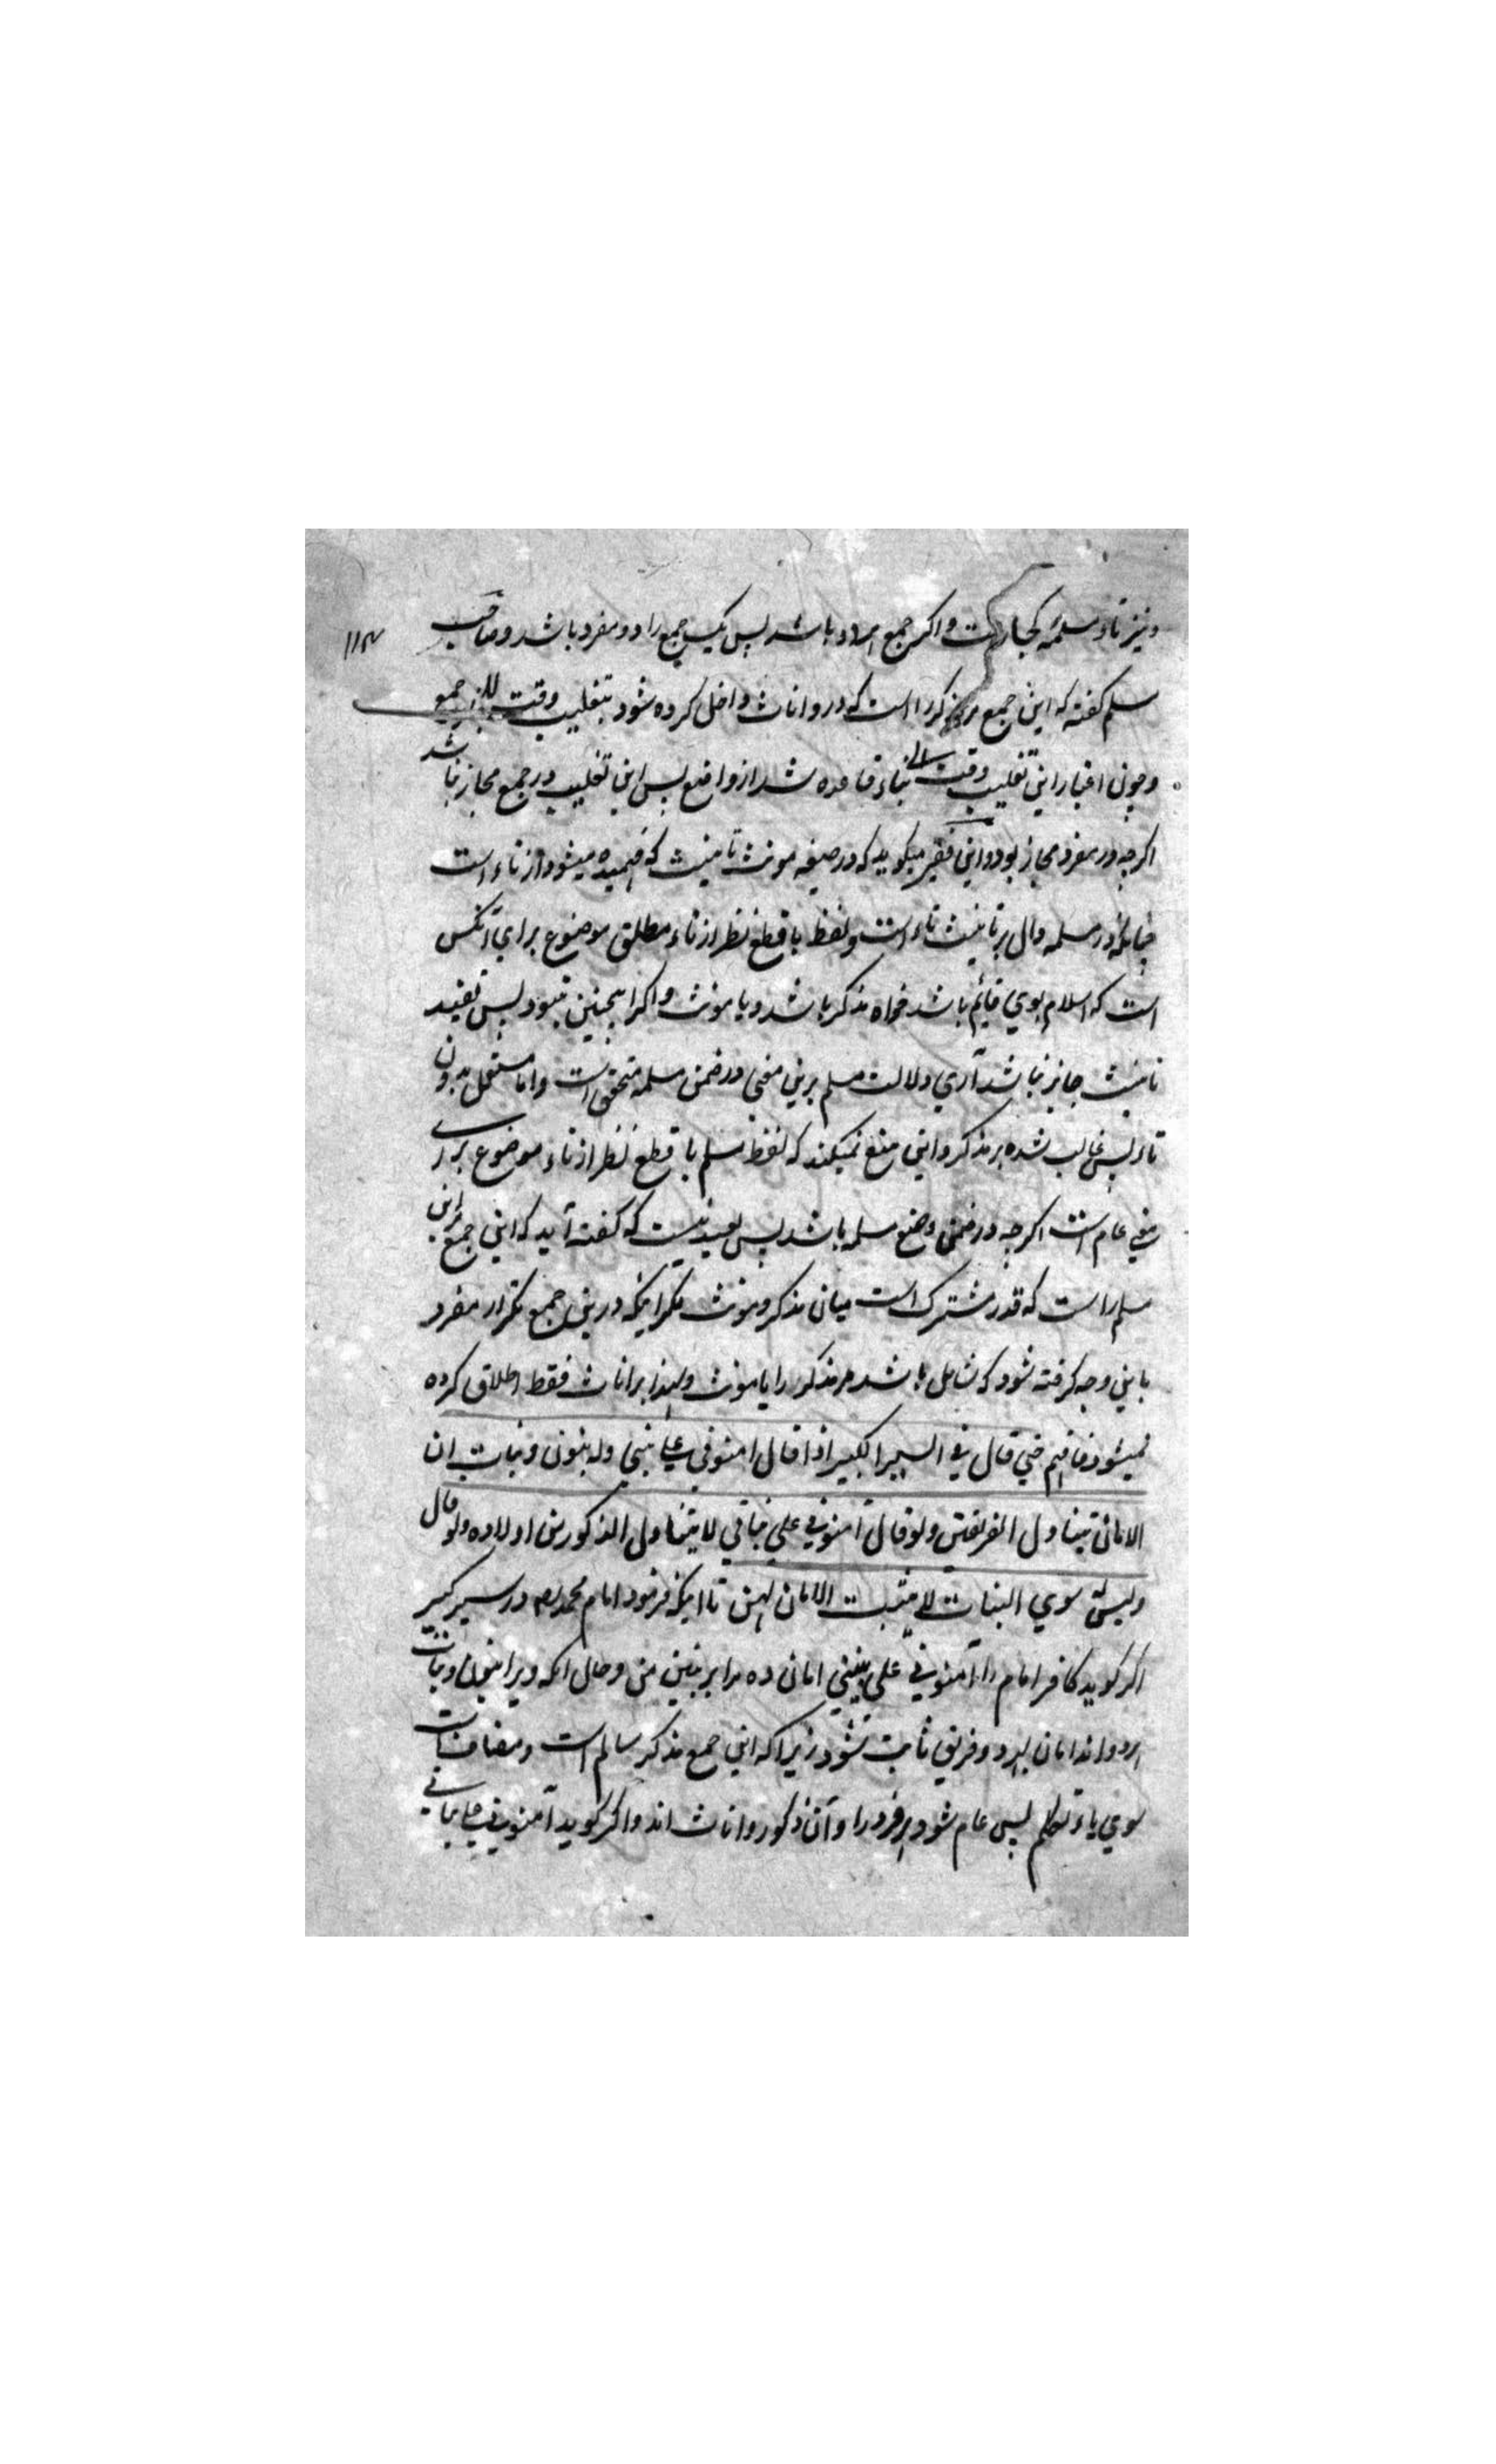 ونیز تاء مسلمة کجا رفت واکر جمع هر دو باشد پس یک جمع را دو مفرد باشد وصاحب
مسلم کفته که این جمع مر مذکر را است که درو اناث داخل کرده شود بتغلیب وقت جمع
وچون اعتبار این تغلیب وقت بناء قاعده شد از واضع پس این تغلیب در جمع مجاز نباشد
اکرچه در مفرد مجاز بود واین فقیر میکوید که در صیغه مونث تانیث که فهمیده میشود از تاء است
چنانکه در مسلمه دال بر تانیث تاء است ولفظ با قطع نظر از تاء مطلق موضوع برای آنکس
است که اسلام بوی قایم باشد خواه مذکر باشد ویا مونث واکر اهمچنین نبود پس تقیید
تانیث جایز نباشد آری دلالت مسلم برین معنی در ضمن مسلمه متحقق است واما مستعمل بدون
تاء پس غالب شده بر مذکر واین منع نمیکند که لفظ مسلم با قطع نظر از تاء موضوع برای
معنی عام است اکرچه در ضمن وضع مسلمه باشد پس بعید نیست که کفته آید که این جمع براین
مسلم را است که قدر مشترک است میان مذکر ومونث مکر اینکه درین جمع تکرار مفرد
باین وجه کرفته شود که شامل باشد مر مذکر را یا مونث ولهذا بر اناث فقط اطلاق کرده
نمیشود فافهم حتی قال فی السیر الکبیر اذا قال امنونی علی بنی وله بنون وبنات ان
الامان یتناول الفریقین ولو قال آمنونی علی بناتی لا یتناول الذکور من اولاده ولو قال
ولیس سوی البنات لا یثبت الامان لهن تا اینکه فرمود امام محمد رح در سیر کبیر
اکر کوید کافر امام را آمنونی علی بنیّ امان ده مرا بر بنین من وحال آنکه ویرا بنون وبنات
هر دو اند امان بهر دو فریق ثابت شود زیرا که این جمع مذکر سالم است ومضاف است
سوی یاء تکلم پس عام شود هر فرد را وآن ذکور واناث اند واکر کوید آمنونی علی بناتی